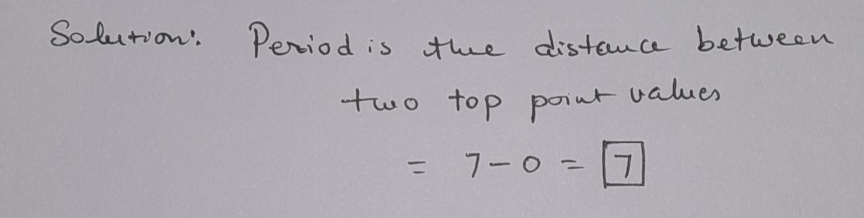 Solution: Period is the distance between
two top point values
= 7-0 = 7